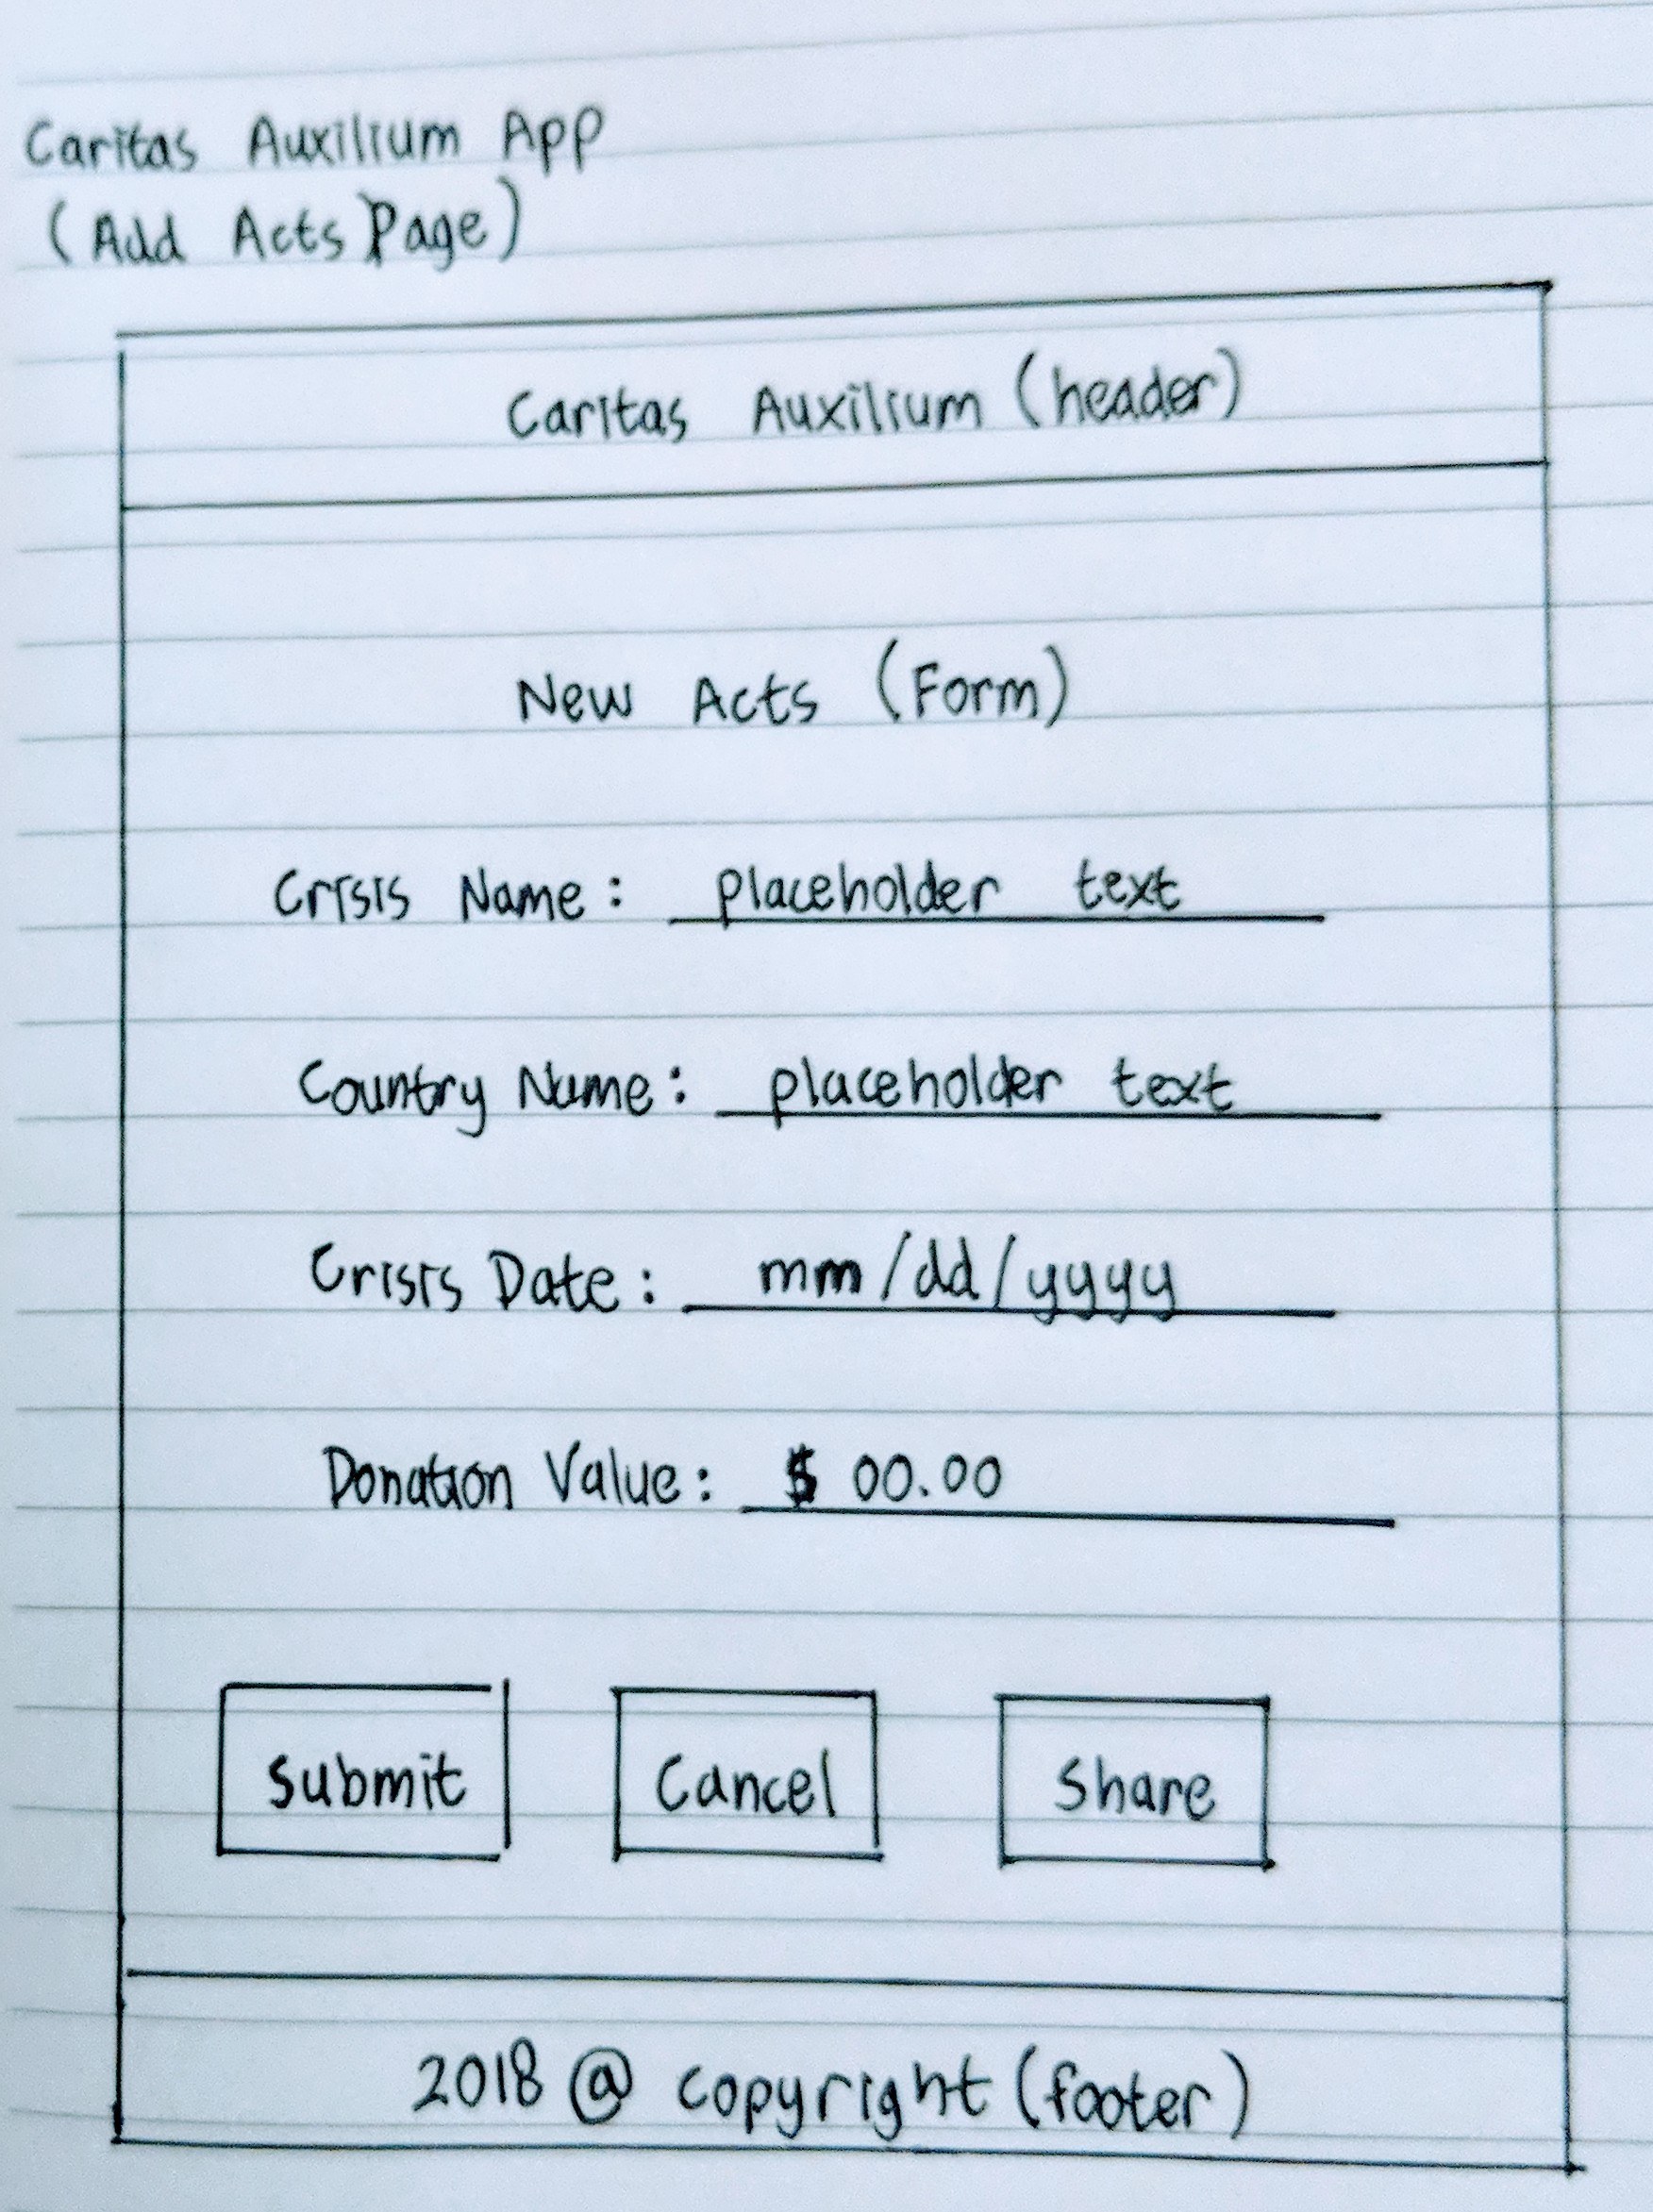 Caritas Auxilium App
(Add Acts Page)
Caritas Auxilium (header)
New Acts (Form)
Crisis Name: placeholder text
Country Name: placeholder text
Crisis Date: mm/dd/yyyy
Donation Value: $ 00.00
Submit Cancel Share
2018 @ copyright (footer)